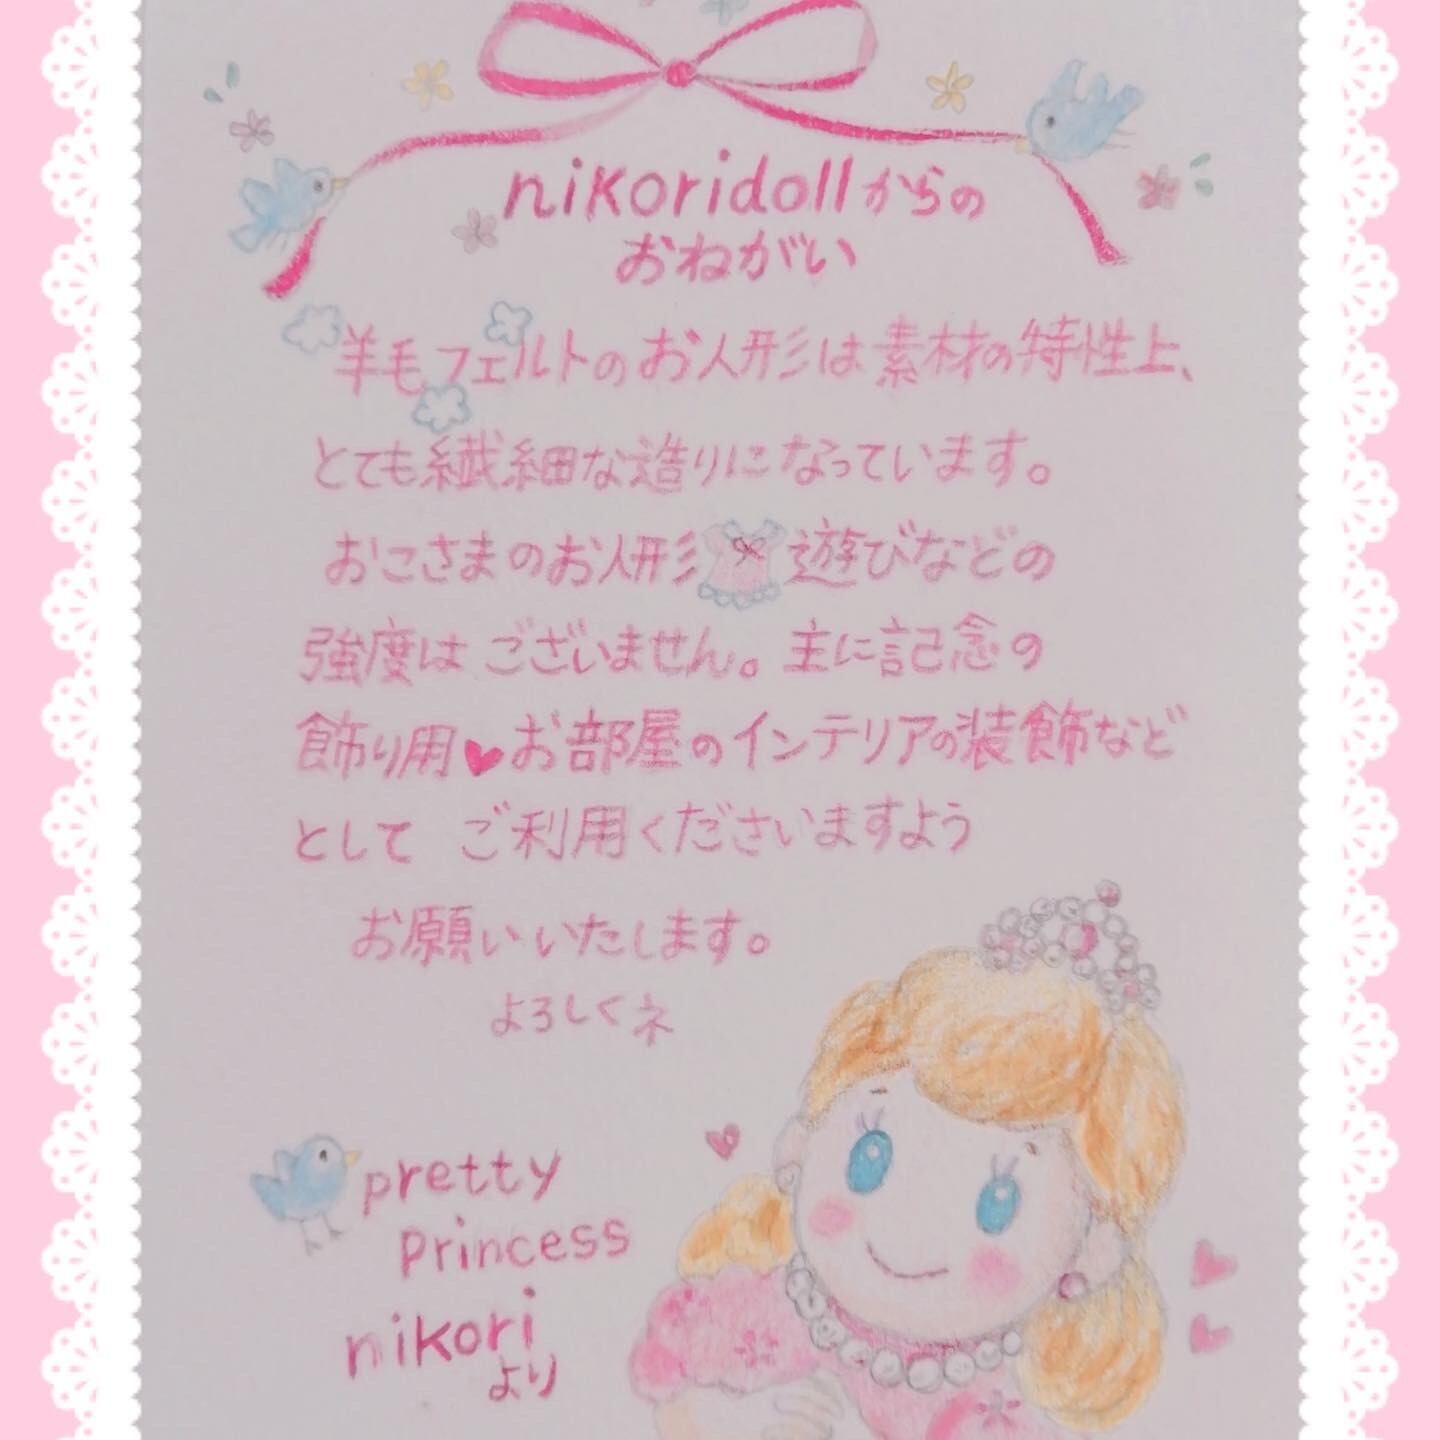 nikoridollからの
おねがい
羊毛フェルトのお人形は素材の特性上、
とても繊細な造りになっています。
おこさまのお人形遊びなどの
強度はございません。主に記念の
飾り用♥お部屋のインテリアの装飾など
として ご利用くださいますよう
お願いいたします。
よろしくネ
pretty
princess
nikori
より